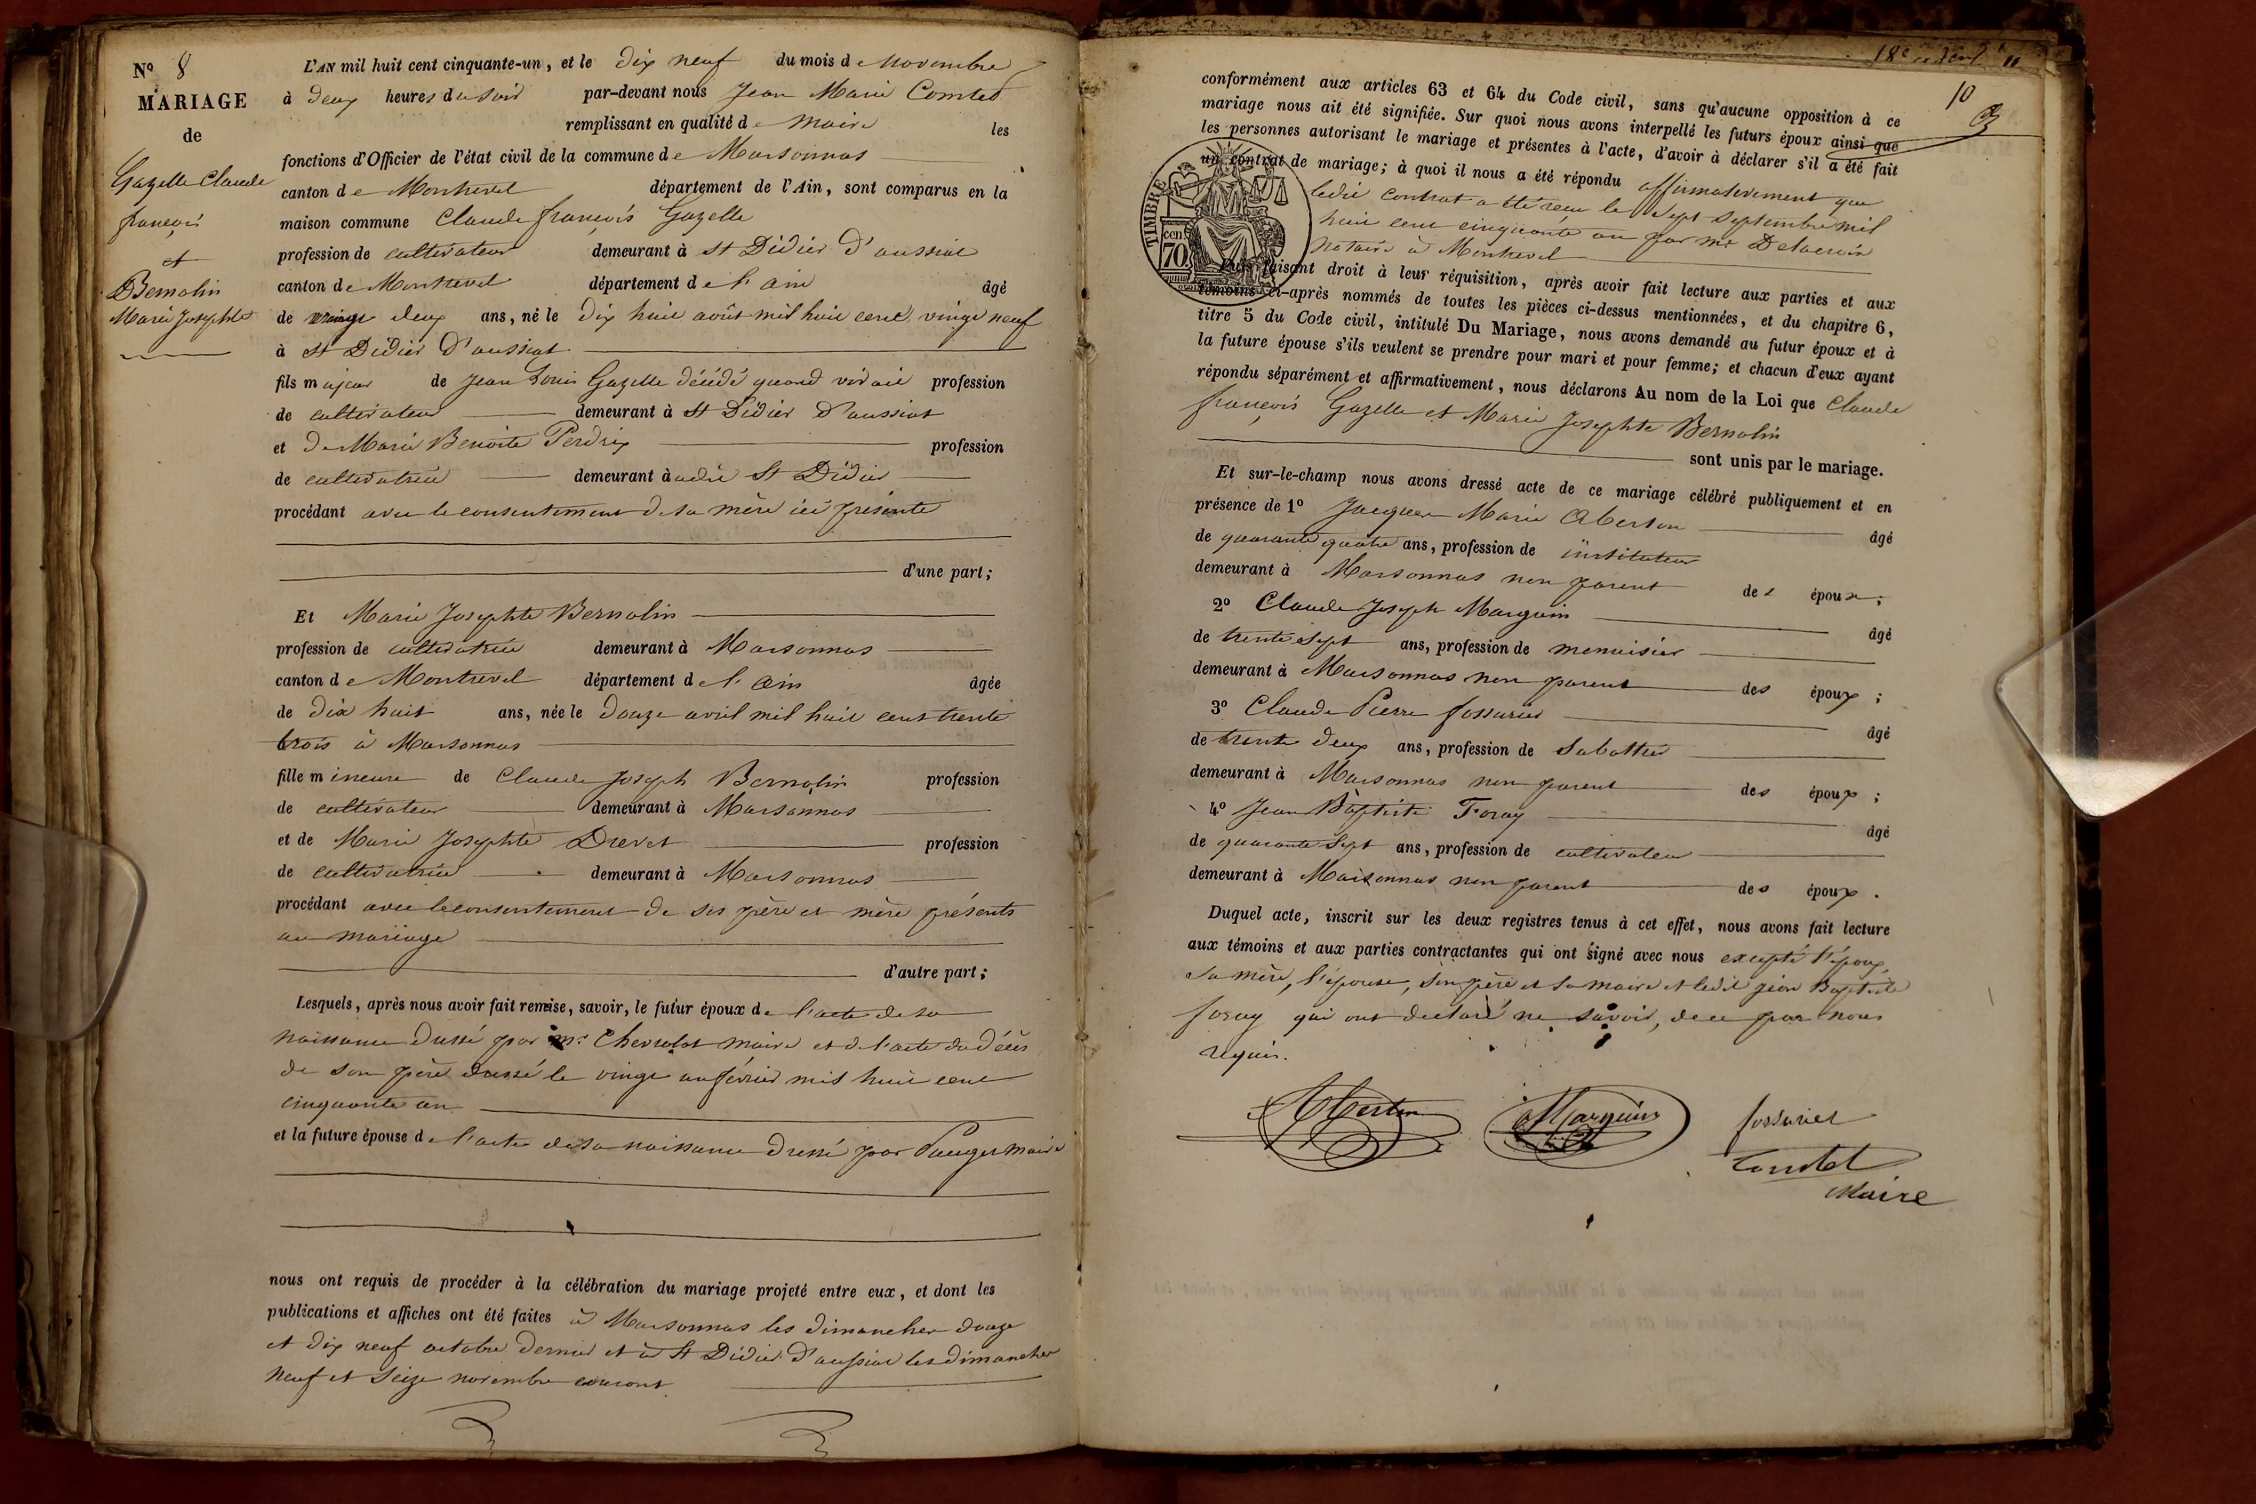 N° 8
MARIAGE
de
Gazelle Claude
françois
et
Bernolin
Marie Josephte
L'AN mil huit cent cinquante-un, et le dix neuf du mois de Novembre
à deux heures du soir par-devant nous Jean Marie Comtet
remplissant en qualité de Maire les
fonctions d'Officier de l'état civil de la commune de Marsonnas
canton de Montrevel département de l'Ain, sont comparus en la
maison commune Claude françois Gazelle
profession de cultivateur demeurant à St Didier D'aussiat
canton de Montrevel département de l'ain âgé
de vingt deux ans, né le dix huit août mil huit cent vingt neuf
à St Didier D'aussiat
fils majeur de Jean Louis Gazelle décédé quand vivait profession
de cultivateur demeurant à St Didier D'aussiat
et De Marie Benoite Perdrix profession
de cultivatrice demeurant à audit St Didier
procédant avec le consentement de sa mère ici présente
d'une part;
Et Marie Josephte Bernolin
profession de cultivatrice demeurant à Marsonnas
canton de Montrevel département de l'ain âgée
de dix huit ans, née le douze avril mil huit cent trente
trois à Marsonnas
fille mineure de Claude Joseph Bernolin profession
de cultivateur demeurant à Marsonnas
et de Marie Josephte Drevet profession
de cultivatrice demeurant à Marsonnas
procédant avec le consentement de ses père et mère présents
au mariage
d'autre part;
Lesquels, après nous avoir fait remise, savoir, le futur époux de l'acte de sa
naissance dressé par mr Chevrolat maire et de l'acte du décès
de son père dressé le vingt un février mil huit cent
cinquante un
et la future épouse de l'acte de sa naissance dressé par Pauget maire
nous ont requis de procéder à la célébration du mariage projeté entre eux, et dont les
publications et affiches ont été faites à Marsonnas les dimanches douze
et dix neuf octobre dernier et à St Didier d'aussiat les dimanches
neuf et seize novembre courant
10
conformément aux articles 63 et 64 du Code civil, sans qu'aucune opposition à ce
mariage nous ait été signifiée. Sur quoi nous avons interpellé les futurs époux ainsi que
les personnes autorisant le mariage et présentes à l'acte, d'avoir à déclarer s'il a été fait
un contrat de mariage; à quoi il nous a été répondu affirmativement que
ledit contrat a été reçu le sept septembre mil
huit cent cinquante un par mr Delacroix
notaire à Montrevel
TIMBRE
cent
70
Puis faisant droit à leur réquisition, après avoir fait lecture aux parties et aux
témoins ci-après nommés de toutes les pièces ci-dessus mentionnées, et du chapitre 6,
titre 5 du Code civil, intitulé Du Mariage, nous avons demandé au futur époux et à
la future épouse s'ils veulent se prendre pour mari et pour femme; et chacun d'eux ayant
répondu séparément et affirmativement, nous déclarons Au nom de la Loi que Claude
françois Gazelle et Marie Josephte Bernolin
sont unis par le mariage.
Et sur-le-champ nous avons dressé acte de ce mariage célébré publiquement et en
présence de 1° Jacques Marie Aberton âgé
de quarante quatre ans, profession de instituteur
demeurant à Marsonnas non parent des époux;
2° Claude Joseph Marguin âgé
de trente sept ans, profession de menuisier
demeurant à Marsonnas non parent des époux;
3° Claude Pierre fossurier âgé
de trente deux ans, profession de Sabottier
demeurant à Marsonnas non parent des époux;
4° Jean Baptiste Foray âgé
de quarante sept ans, profession de cultivateur
demeurant à Marsonnas non parent des époux.
Duquel acte, inscrit sur les deux registres tenus à cet effet, nous avons fait lecture
aux témoins et aux parties contractantes qui ont signé avec nous excepté l'époux,
sa mère, l'épouse, son père et sa maire et ledit Jean Baptiste
foray qui ont déclaré ne savoir, de ce par nous
requis.
Aberton Marguin fossurier
Comtet
Maire